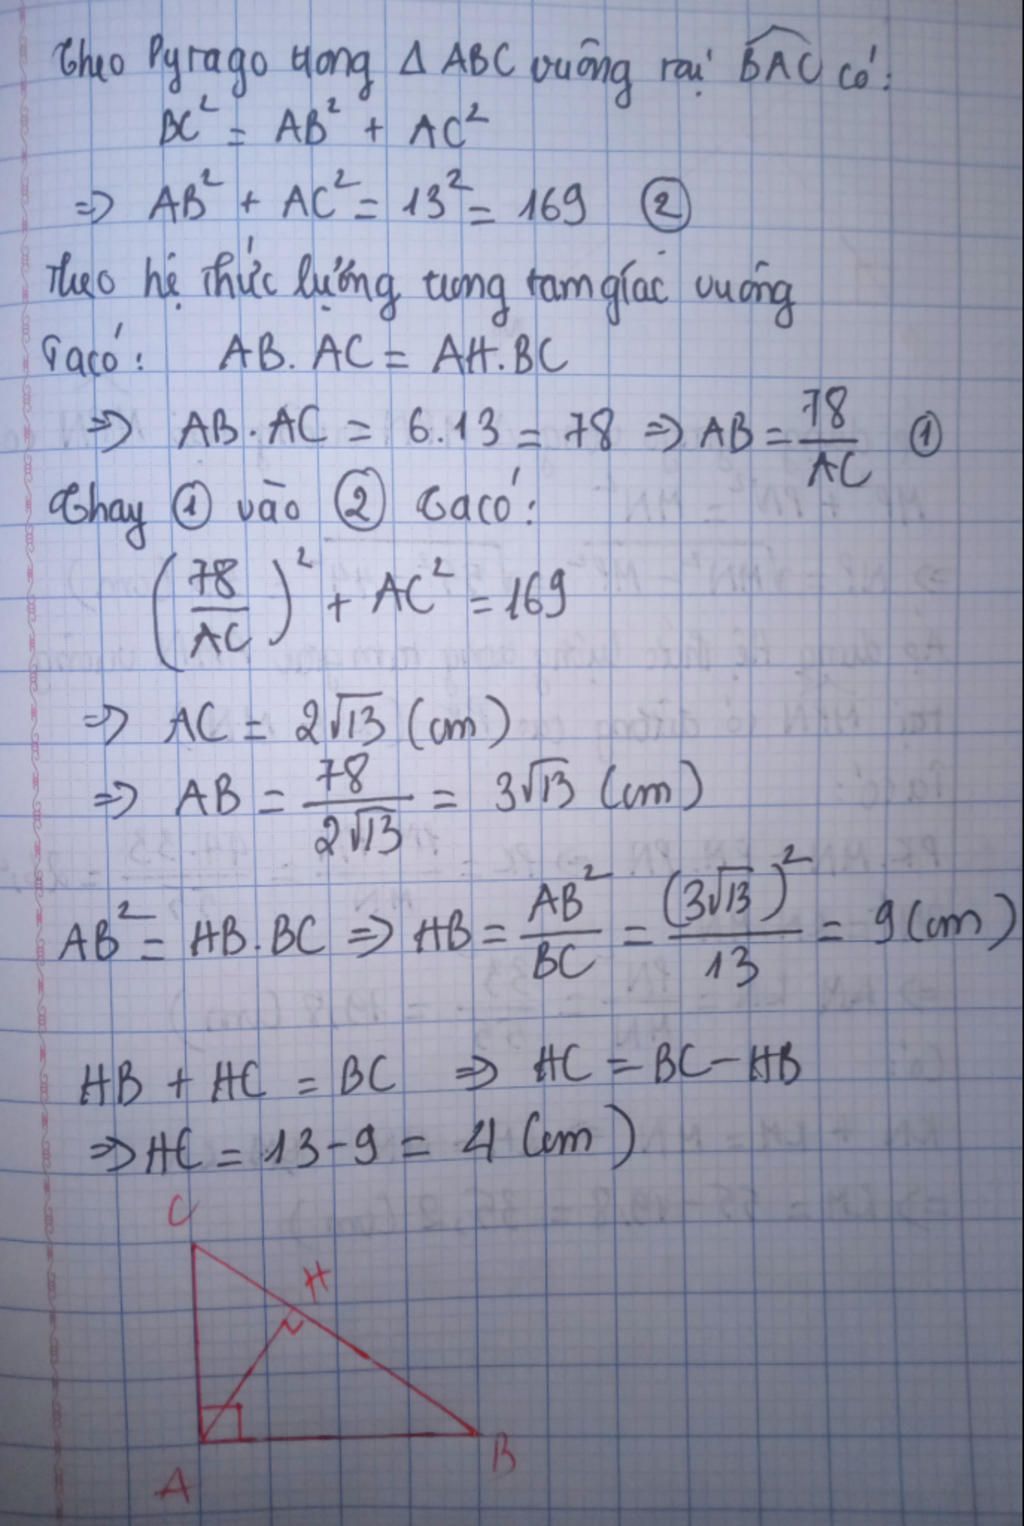 Theo Pyrago trong Δ ABC vuông tại BAC có:
BC² = AB² + AC²
=> AB² + AC² = 13² = 169 ②
Theo hệ thức lượng trong tam giác vuông
Ta có: AB. AC = AH. BC
=> AB. AC = 6.13 = 78 => AB = 78/AC ①
Thay ① vào ② ta có:
(78/AC)² + AC² = 169
=> AC = 2√13 (cm)
=> AB = 78/2√13 = 3√13 (cm)
AB² = HB. BC => HB = AB²/BC = (3√13)²/13 = 9 (cm)
HB + HC = BC => HC = BC - HB
=> HC = 13 - 9 = 4 (cm)
C
H
B
A